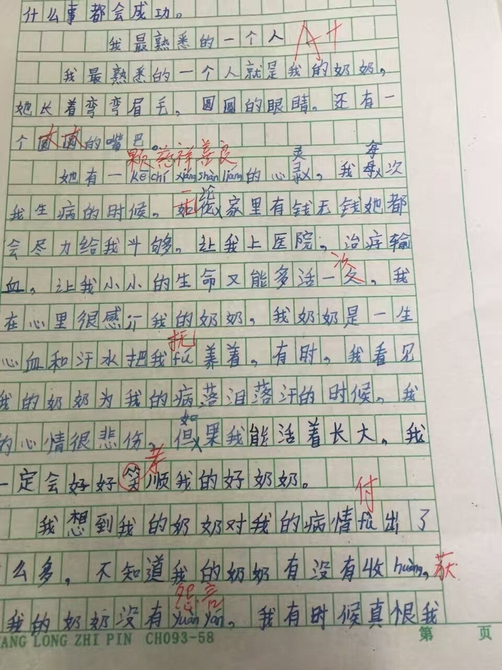 什么事都会成功。
我最熟悉的一个人 A+
我最熟悉的一个人就是我的奶奶,
她长着弯弯眉毛,圆圆的眼睛。还有一
个大大的嘴巴。
颗慈祥善良 灵 每
她有一 kē chí xiáng shàn liáng 的心,我每次
我生病的时候。家里有钱无钱她都
会尽力给我斗够。让我上医院,治疗输
血。让我小小的生命又能多活一次。我
在心里很感介我的奶奶,我奶奶是一生
抚
心血和汗水把我 fǔ 养着,有时。我看见
我的奶奶为我的病落泪落汗的时候。我
如
为心情很悲伤,但果我能活着长大,我
孝
一定会好好笑顺我的好奶奶。
付
我想到我的奶奶对我的病情 fù 出了
么多,不知道我的奶奶有没有收 huò 获
怨言
我的奶奶没有 yuàn yán。我有时候真恨我
ANG LONG ZHI PIN CH093-58 第 页